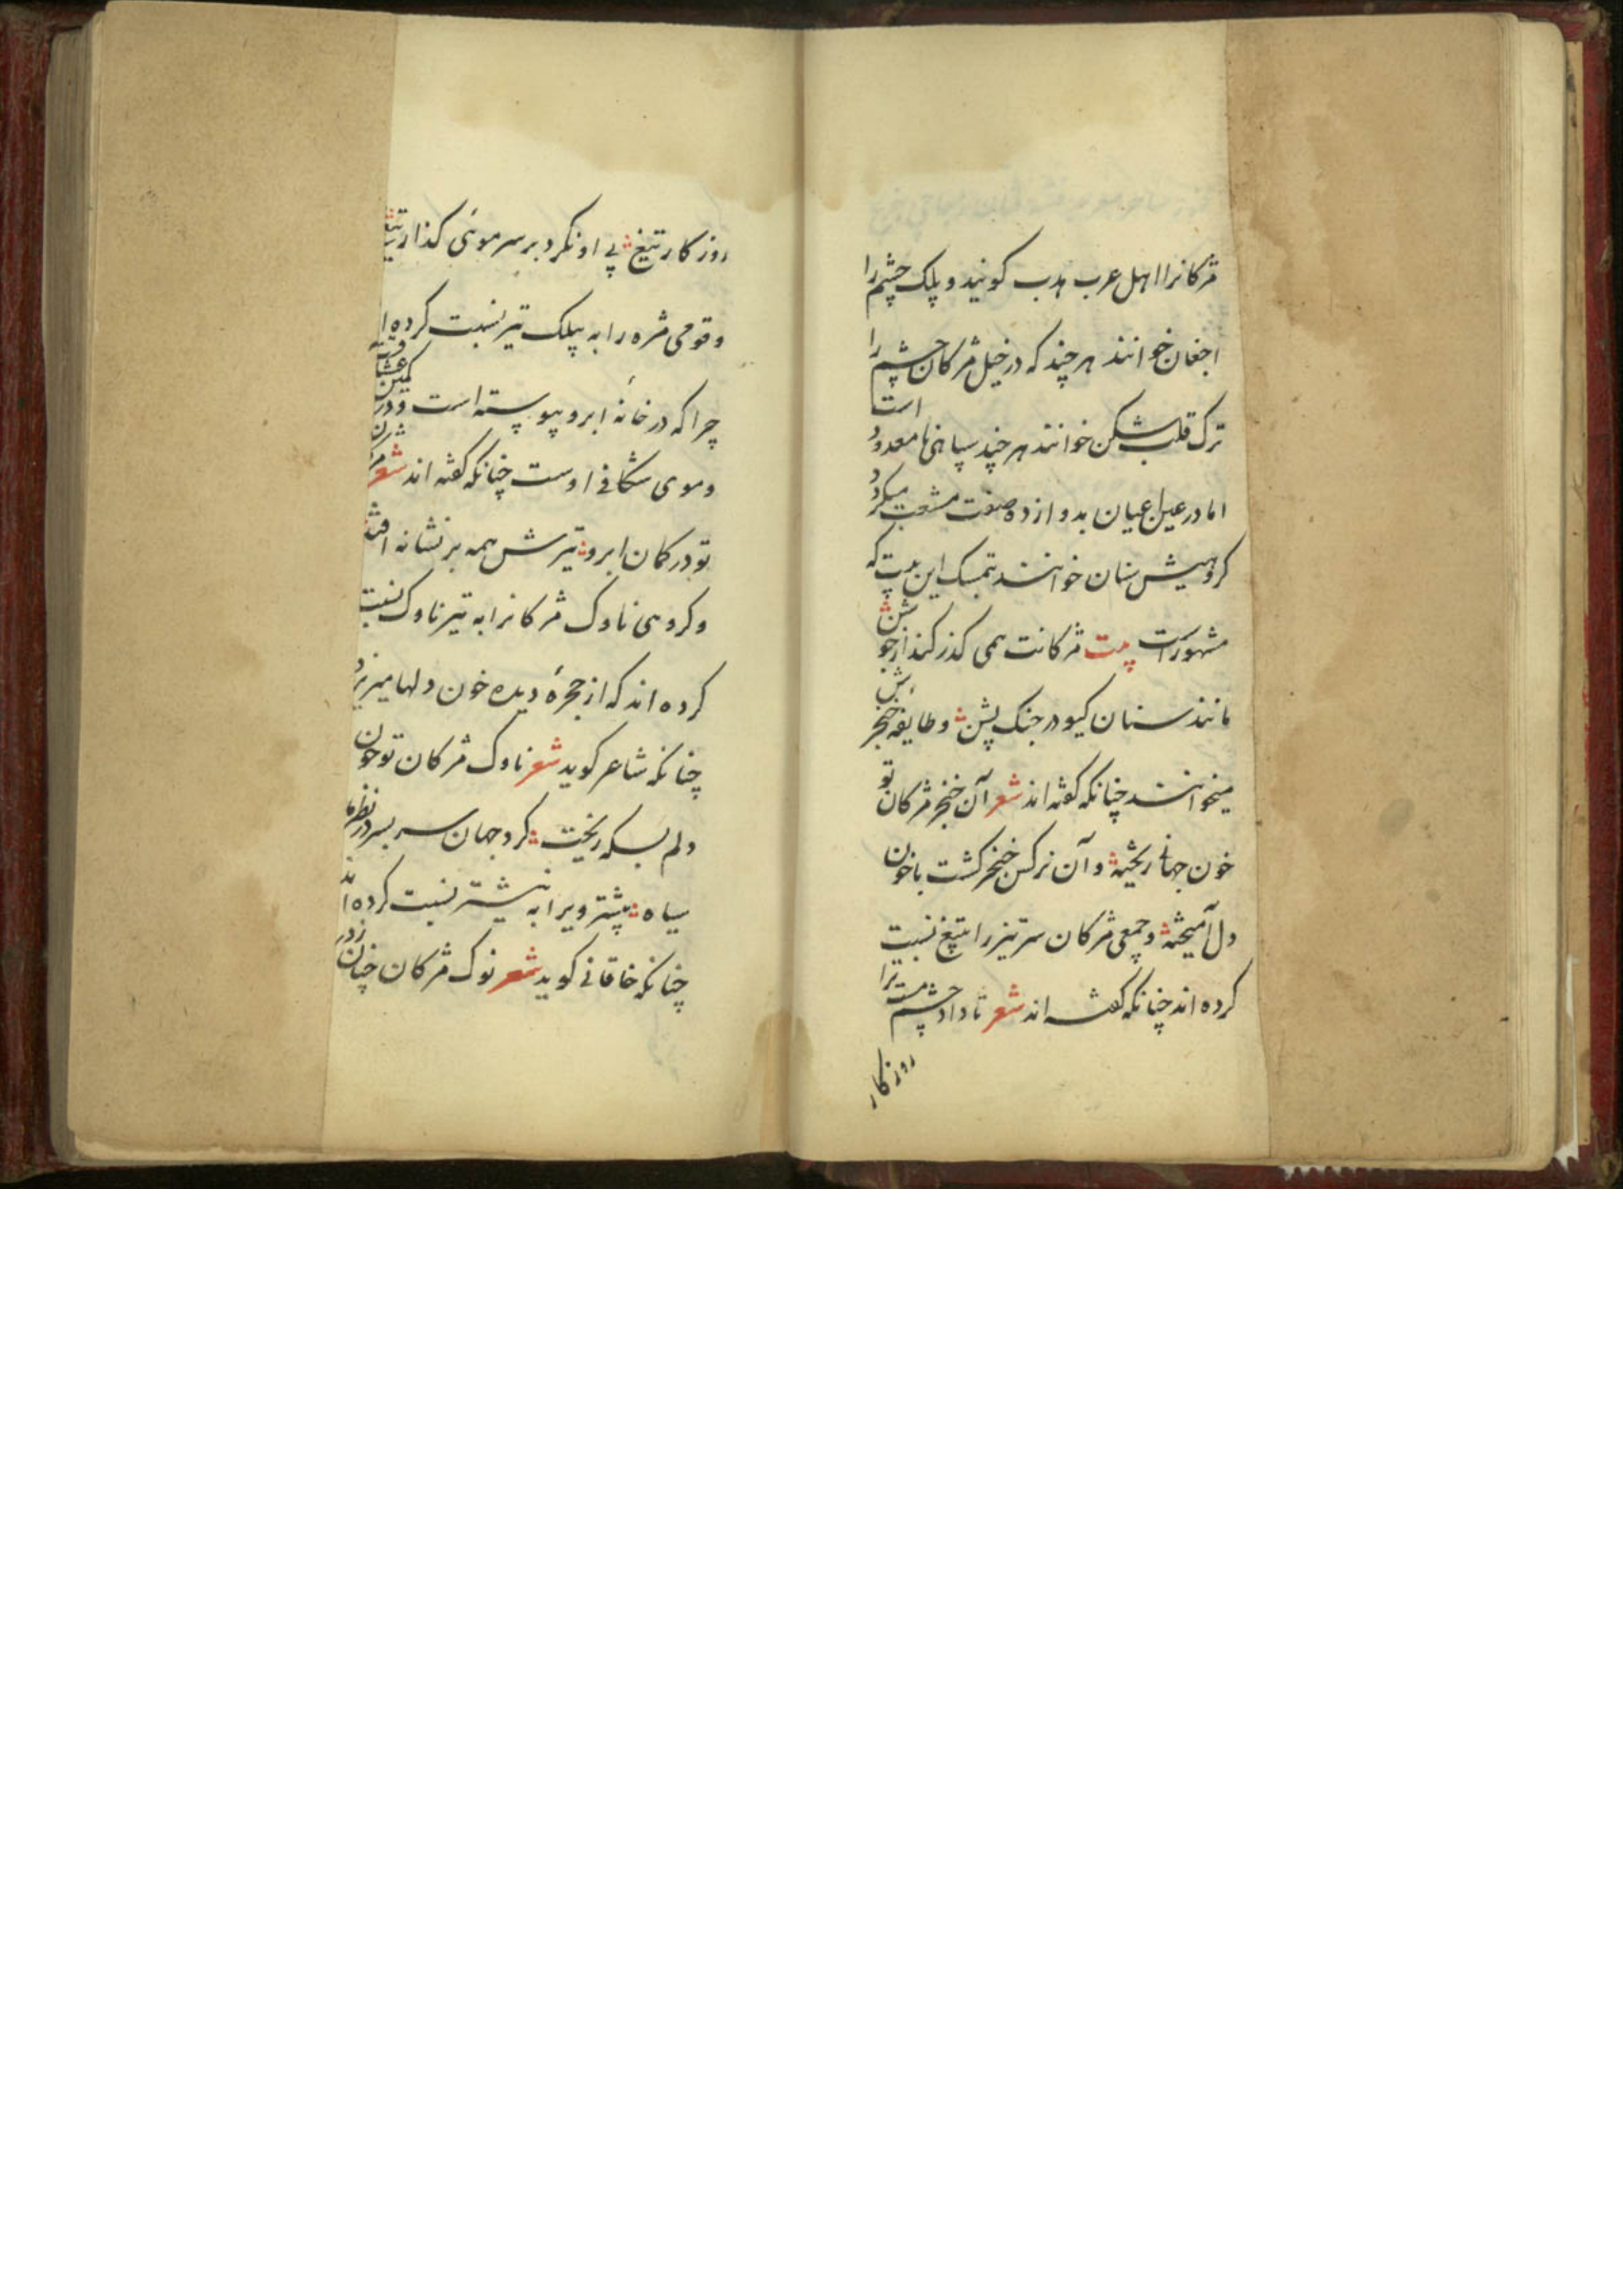 مژکانرا اهل عرب هدب کویند و پلک چشم را
اجفان خوانند هر چند که در خیل مژکان چشم را
ترک قلب شکن خوانند هر چند سپاهی نامعدود است
اما در عین اعیان بدوازده صفت مشعب میکردد
کروهیش سنان خوانند بتمسک این بیت که
مشهور است بیت مژکانت همی کذر کند از جوشن
مانند سنان کیو در جنک پشن و طایفه خنجرش
میخوانند چنانکه کفته اند شعر آن خنجر مژکان تو
خون جهانی ریخته و آن نرکس خنجر کشت با خون
دل آمیخته و جمعی مژکان سرتیز را بتیغ نسبت
کرده اند چنانکه کفته اند شعر تا داد چشم مست ترا
روزکار
روزکار تیغ بی او نکرد بر سر موئی کذار تیغ
و قومی مژه را به پیلک تیر نسبت کرده ا
چرا که در خانهٔ ابرو پیوسته است و در کمین عشاق
و موی شکافی اوست چنانکه کفته اند شعر مژکان
تو در کمان ابرو تیرش همه بر نشانه افتد
و کروهی ناوک مژکانرا به تیر ناوک نسبت
کرده اند که از حجرهٔ دیده خون دلها میریزد
چنانکه شاعر کوید شعر ناوک مژکان تو خون
دلم بسکه ریخت کرد جهان سر بسر در نظرما
سیاه بیشتر ویرا به نیشتر نسبت کرده اند
چنانکه خاقانی کوید شعر نوک مژکان چنان زدر